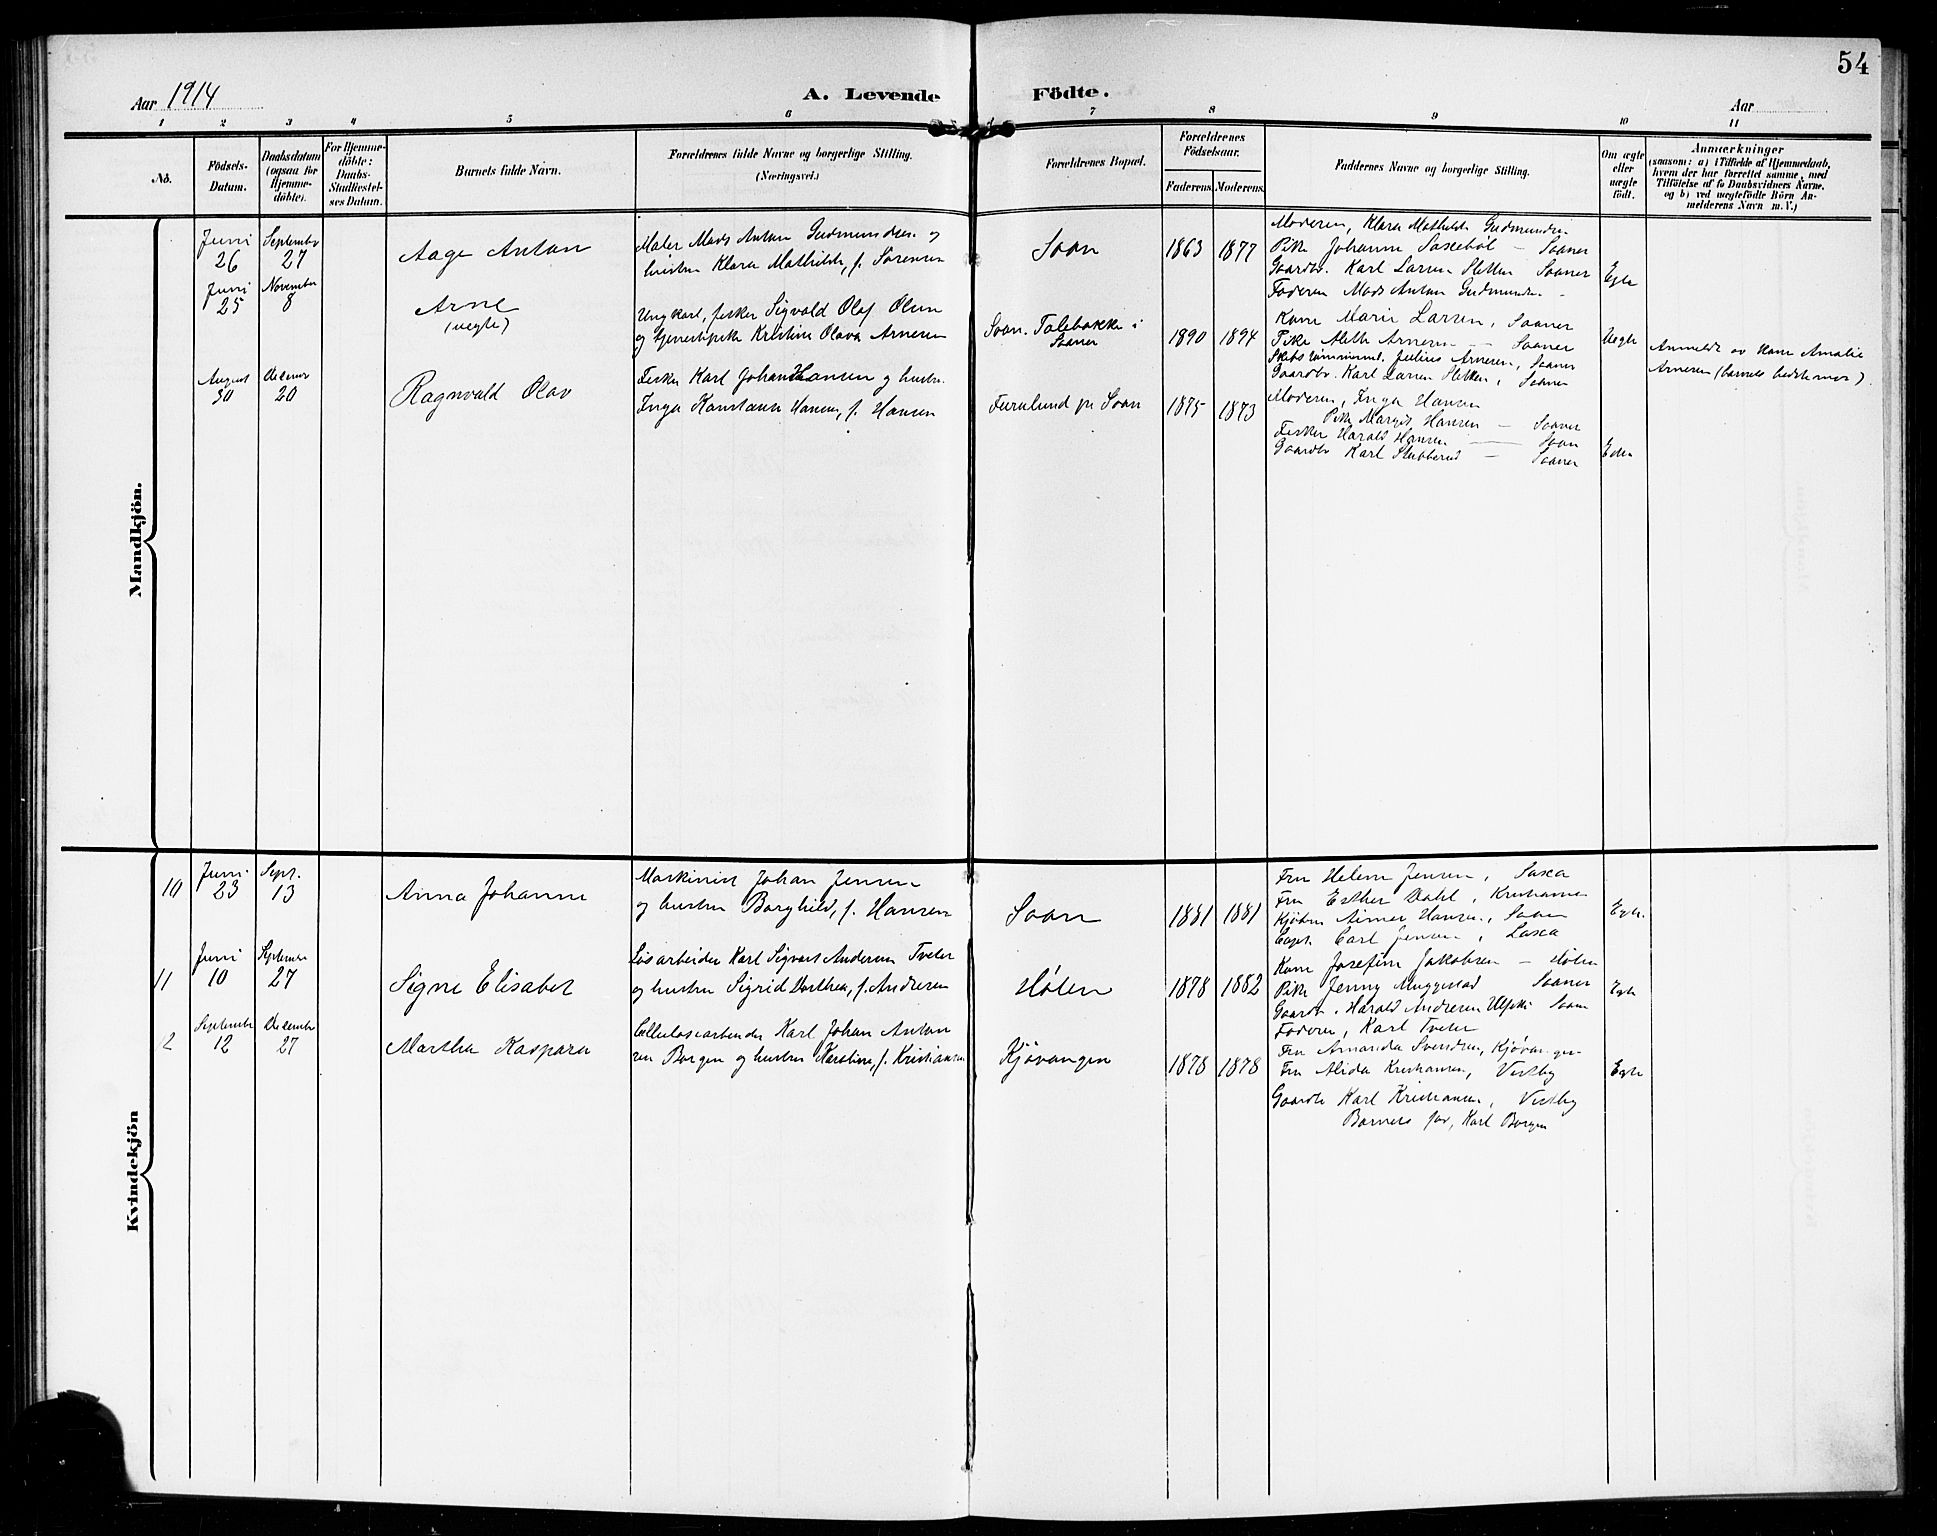 54
Aar 1914
A. Levende Födte.
Aar
1 2 3 4 5 6 7 8 9 10 11
No.
Födsels-
Datum.
Daabsdatum
(ogsaa for
Hjemme-
döbte).
For Hjemme-
döbte:
Daabs-
Stadfæstel-
ses Datum.
Barnets fulde Navn.
Forældrenes fulde Navne og borgerlige Stilling.
(Næringsvei.)
Forældrenes Bopæl.
Forældrenes
Födselsaar.
Faderens. Moderens.
Faddernes Navne og borgerlige Stilling.
Om ægte
eller
uægte
født.
Anmærkninger
(saasom: a) i Tilfælde af Hjemmedaab,
hvem der har forrettet samme, med
Tilföielse af to Daabsvidners Navne,
og b) ved uægtefödte Börn An-
melderens Navn m. V.)
Mandkjön.
Juni
26
September
27
Aage Anton
Maler Mads Anton Gudmundsen og
hustru Klara Mathilde, f. Sørensen
Soon
1863 1877
Moderen, Klara Mathilde Gudmundsen
Pike Johanne Saxebøl — Saaner
Gaardbr. Karl Larsen Sletten Saaner
Faderen Mads Anton Gudmundsen
Egte
Juni
25
November
8
Arne
(uegte)
Ungkarl, fisker Sigvald Olaf Olsen
og tjenestepike Kristine Olava Arnesen
Soon. Talebakke i
Saaner
1890 1894
Kone Marie Larsen, Saaner
Pike Aleth Arnesen — Saaner
Skibstømmermd. Julius Arnesen, Saaner
Gaardbr. Karl Larsen Sletten, Saaner
Uegte
Anmeldt av Kone Amalie
Arnesen (barnets bedstemor).
August
30
December
20
Ragnvald Olav
Fisker Karl Johan Hansen og hustru
Inga Konstanse Hansen, f. Hansen
Furulund pr Soon
1875 1873
Moderen, Inga Hansen
Pike Margit Hansen — Saaner
Fisker Harald Hansen — Soon
Gaardbr Karl Stubberud — Saaner
Egte
Kvindekjön
10
Juni
23
Sept.
13
Anna Johanne
Maskinist Johan Jensen
og hustru Borghild, f. Hansen
Soon
1881 1881
Fru Helene Jensen, Laxa
Fru Esther Dahl, Kristiania
Kjøbm Aimar Hansen, Soon
Capt. Carl Jensen, Laxa
Egte.
11
Juni
10
September
27
Signe Elisabet
Løsarbeider Karl Sigvart Andersen Tveter
og hustru Sigrid Dorthea, f. Andresen
Hølen
1878 1882
Kone Josefine Jakobsen — Hølen
Pike Jenny Muggerud Saaner
Gaardbr. Harald Andresen Saaner
Faderen, Karl Tveter
Egte
2
September
12
December
27
Martha Kaspara
Cellulosearbeider Karl Johan Anton-
sen Borgen og hustru Karoline, f. Kristiansen
Kjøvangen
1878 1878
Fru Amanda Svendsen, Kjøvangen
Fru Alida Kristiansen, Vestby
Gaardbr Karl Kristiansen, Vestby
Barnets far, Karl Borgen
Egte